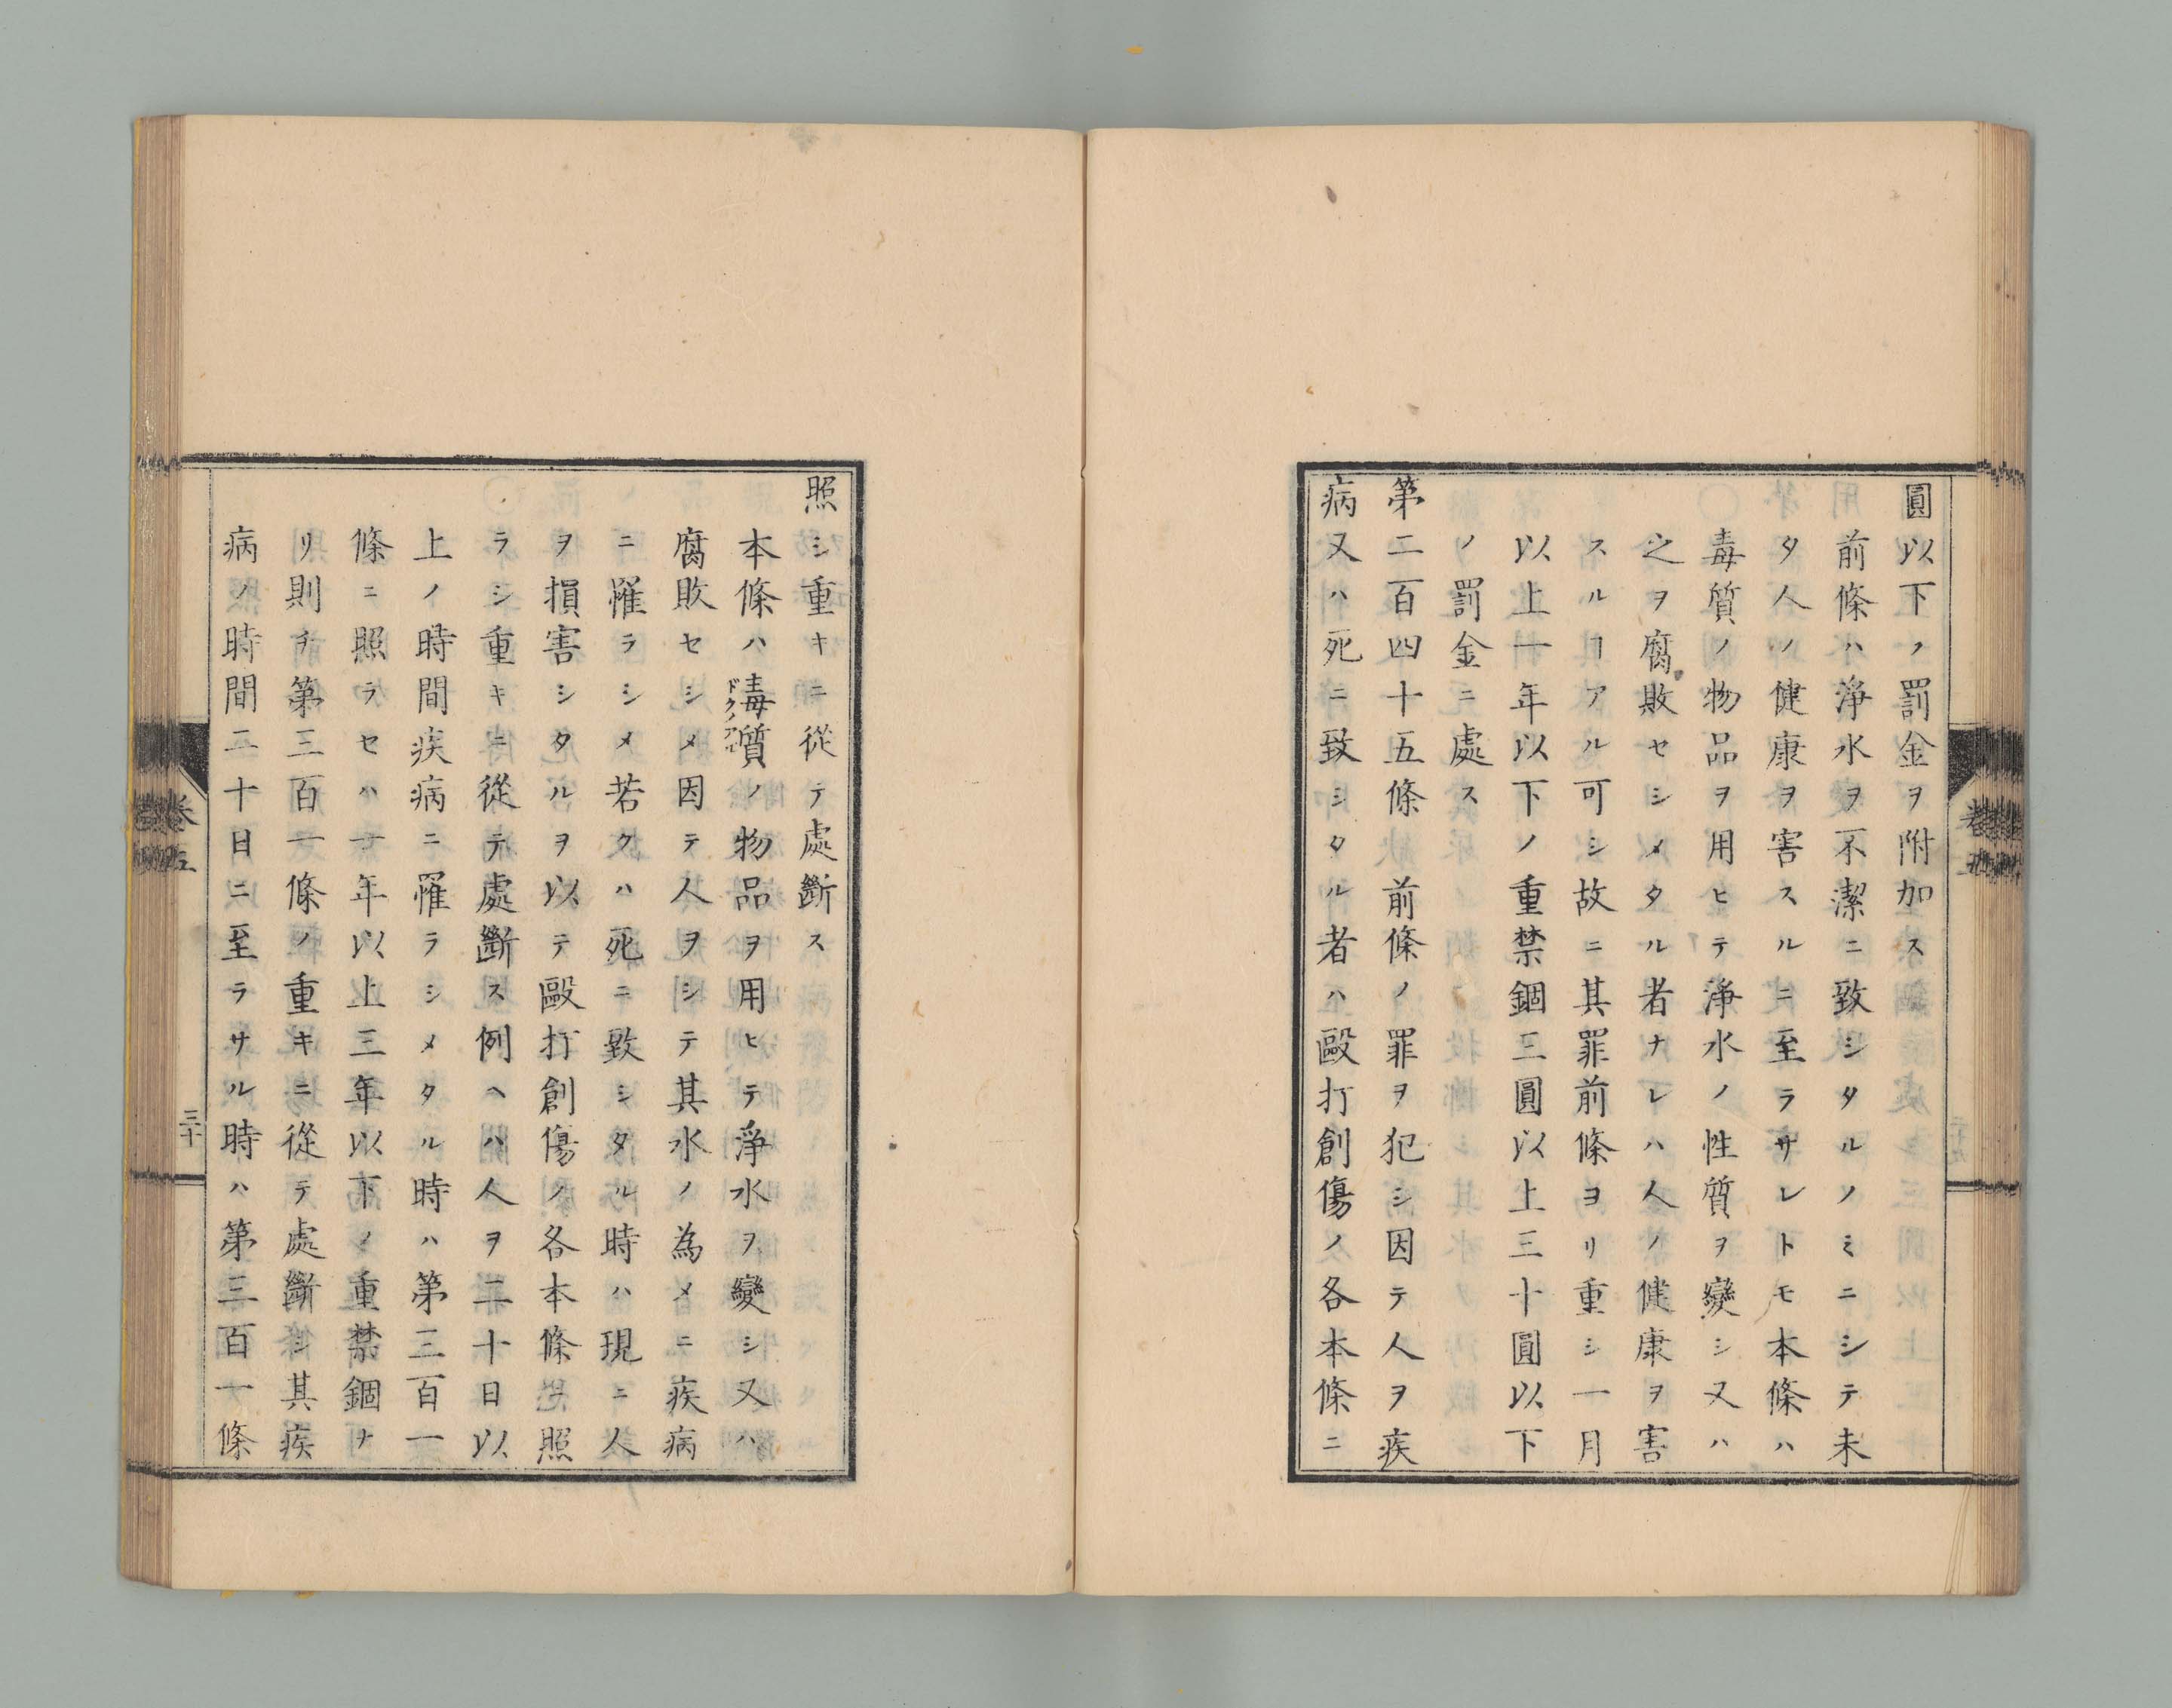 圓以下ノ罰金ヲ附加ス
前條ハ淨水ヲ不潔ニ致シタルノミニシテ未
タ人ノ健康ヲ害スルニ至ラサレトモ本條ハ
毒質ノ物品ヲ用ヒテ淨水ノ性質ヲ變シ又ハ
之ヲ腐敗セシメタル者ナレハ人ノ健康ヲ害
スルヿアル可シ故ニ其罪前條ヨリ重シ一月
以上一年以下ノ重禁錮三圓以上三十圓以下
ノ罰金ニ處ス
第二百四十五條　前條ノ罪ヲ犯シ因テ人ヲ疾
病又ハ死ニ致シタル者ハ毆打創傷ノ各本條ニ
照シ重キニ從テ處斷ス
本條ハ毒質ノ物品ヲ用ヒテ淨水ヲ變シ又ハ
ドクノアル
腐敗セシメ因テ人ヲシテ其水ノ為メニ疾病
ニ罹ラシメ若クハ死ニ致シタル時ハ現ニ人
ヲ損害シタルヲ以テ毆打創傷ノ各本條ニ照
ラシ重キニ從テ處斷ス例ヘハ人ヲ二十日以
上ノ時間疾病ニ罹ラシメタル時ハ第三百一
條ニ照ラセハ一年以上三年以下ノ重禁錮ナ
リ則チ第三百一條ノ重キニ從テ處斷シ其疾
病ノ時間二十日ニ至ラサル時ハ第三百一條
卷五
三十
卷五